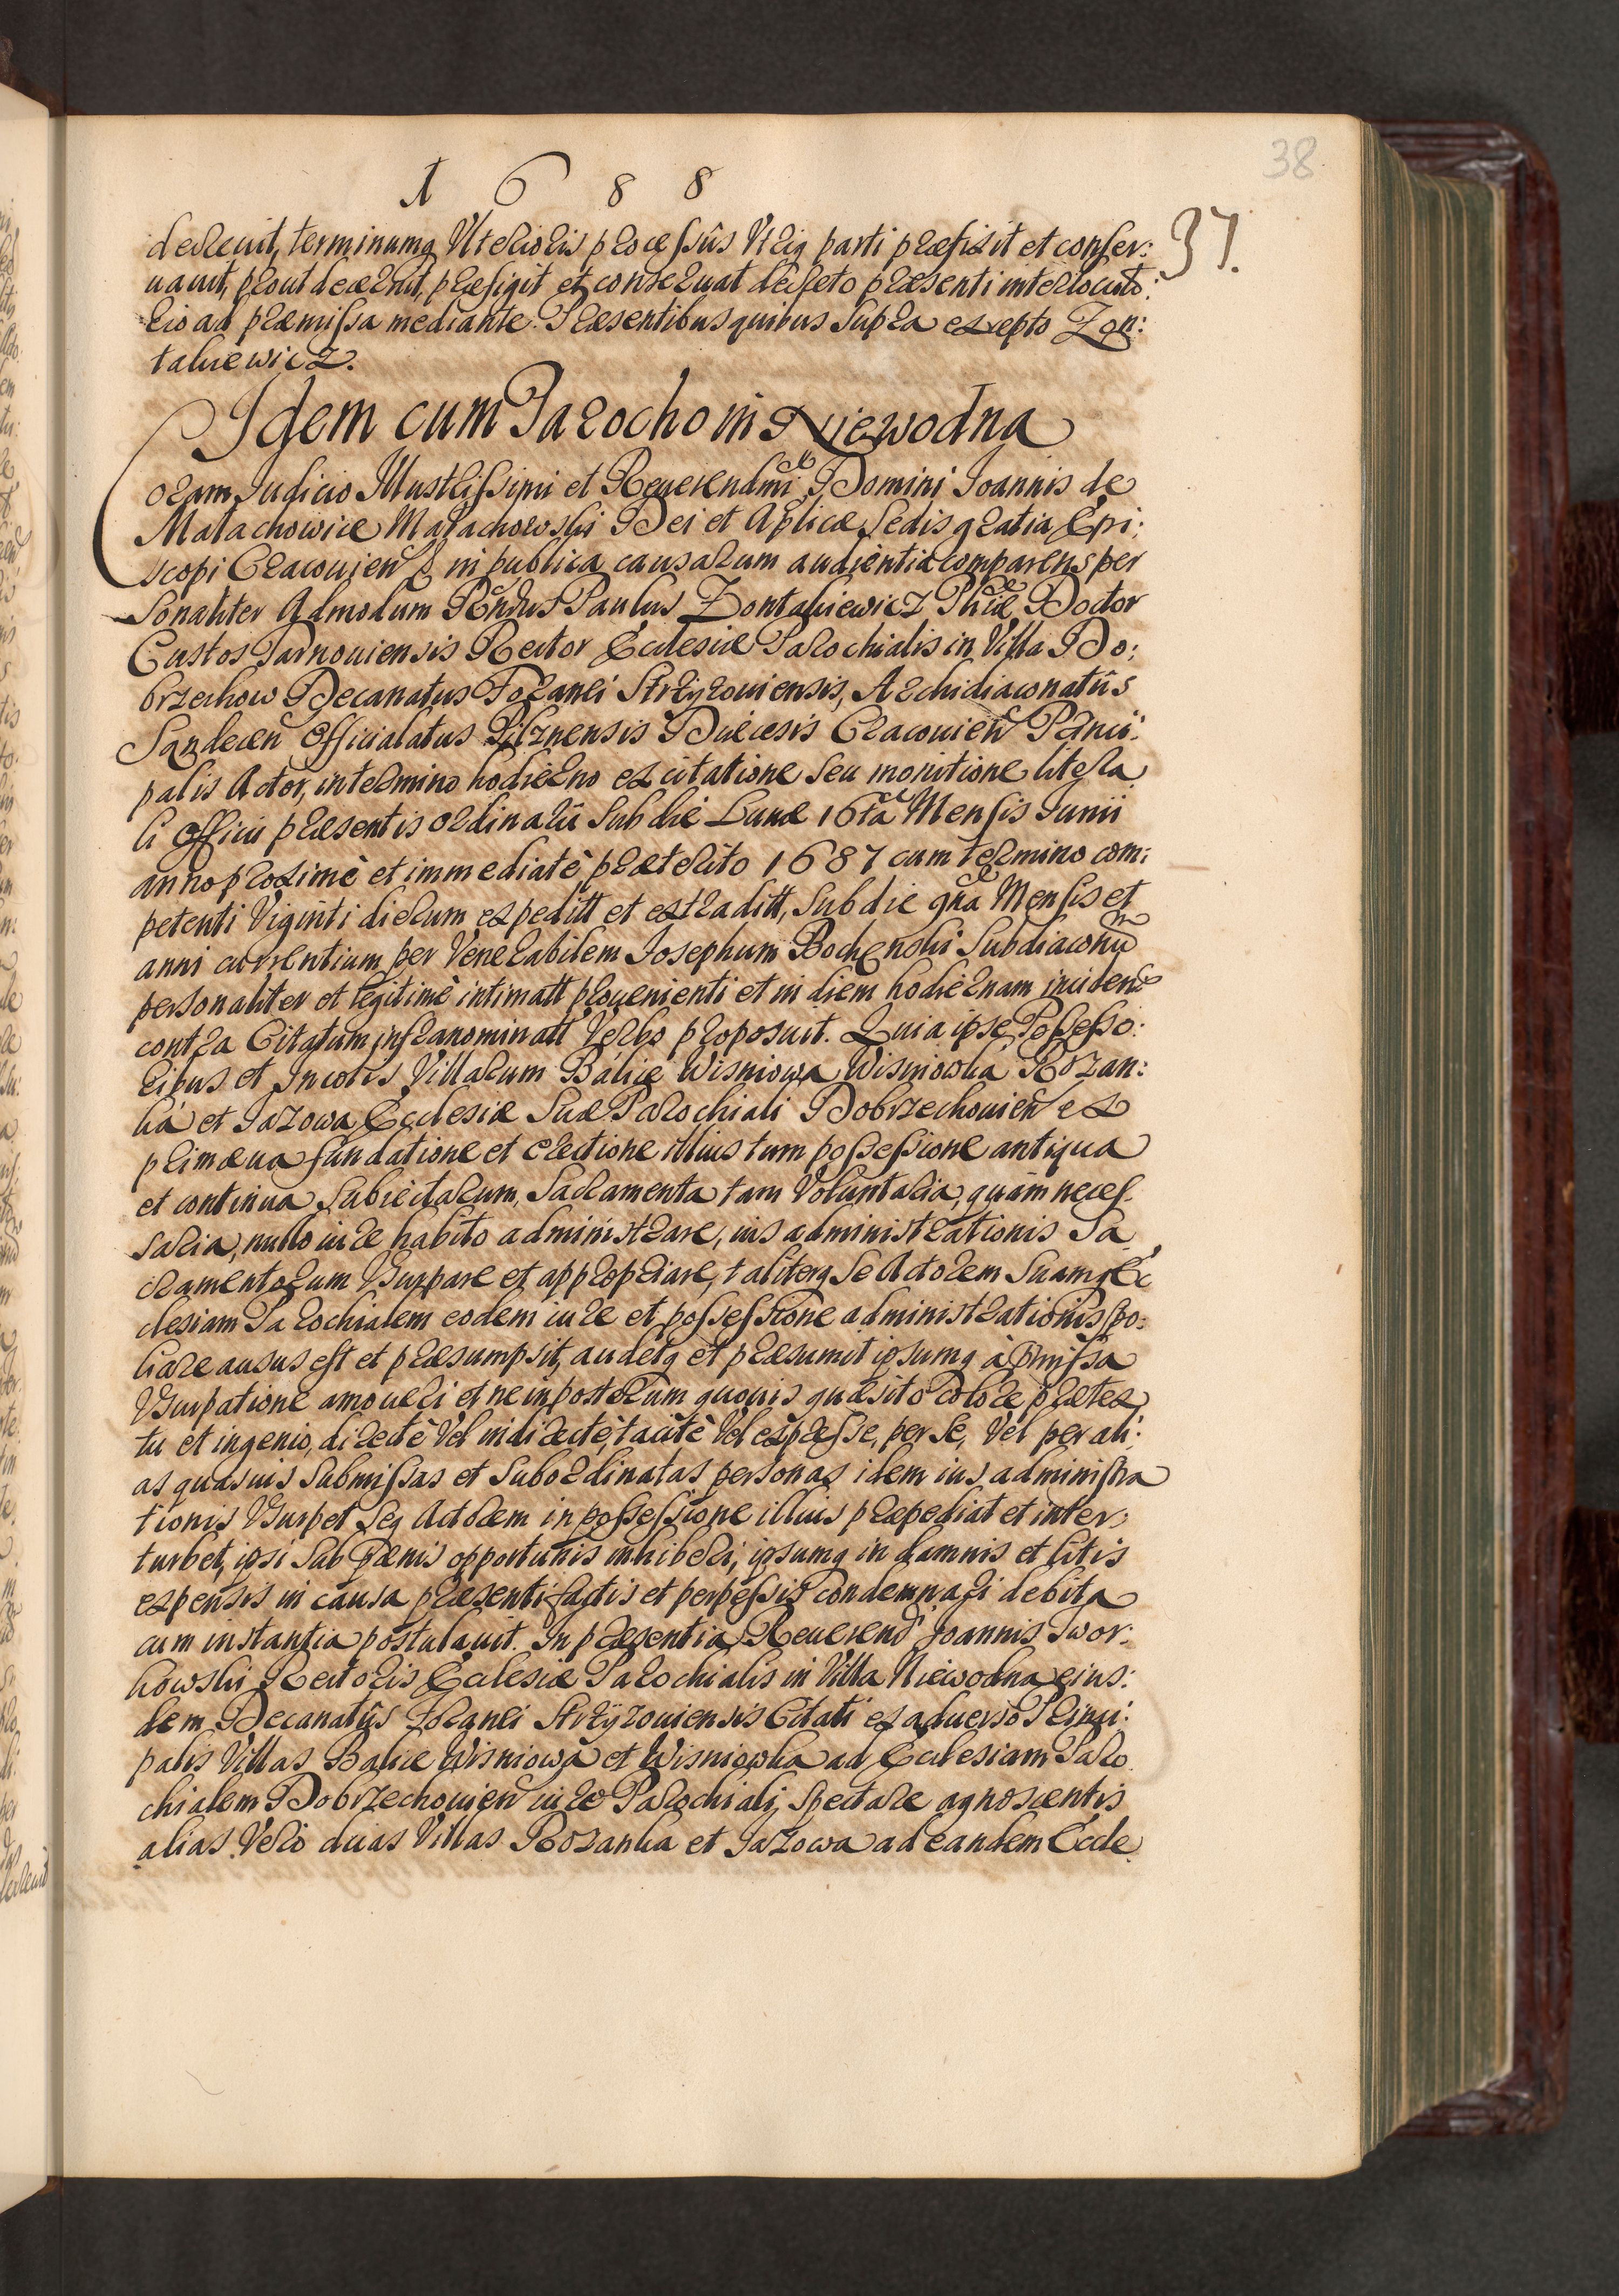 38
1 6 8 8
37.
decreuit, terminumq Vlterioris processûs Vtriq parti præfixit et conser:
uauit, prout decernit, præfigit et conseruat decreto præsenti interlocuto:
rio ad præmissa mediante. Præsentibus quibus Supra excepto Zon:
taliiewicz.
Idem cum Parocho in Niewodna
Coram Iudicio Illustrissimi et Reuerendmi Domini Ioannis de
Małachowice Małachowski Dei et Aplicæ Sedis gratia Epi:
scopi Cracouien in publica causarum audientia comparens per
sonaliter Admodum Rndus Paulus Zontaliewicz Phiæ Doctor
Custos Tarnouiensis Rector Ecclesiæ Parochialis in Villa Do:
brzechow Decanatus Foranei Strzyzouiensis, Archidiaconatûs
Sandecen Officialatus Pilznensis Diæcesis Cracouien Princi:
palis Actor, in termino hodierno ex citatione seu monitione litera
li Officii præsentis ordinarii Sub die Lunæ 16ta Mensis Iunii
anno proximè et immediatè præterito 1687 cum termino com:
petenti Viginti dierum expeditt et extraditt, Sub die qua Mensis et
anni currentium per Venerabilem Iosephum Bochenski Subdiaconu
personaliter et legitimè intimatt prouenienti et in diem hodiernam inciden
contra Citatum infranominatt Verbo proposuit. Quia ipse Possesso:
ribus et Incolis Villarum Balice Wisniowa Wisniowka Rozan:
ka et Jazowa Ecclesiæ Suæ Parochiali Dobrzechouien ex
primæua fundatione et erectione illius tum possessione antiqua
et continua Subiectarum, Sacramenta tam Voluntaria, quàm neces
saria, nullo iure habito administrare, ius administrationis Sa
cramentorum Vsurpare et appropriare, taliterq Se Actorem Suamq Ec
clesiam Parochialem eodem iure et possessione administrationis spo:
liare ausus est et præsumpsit, audetq et præsumit ipsumq à pmissa
Vsurpatione amoueri et ne in posterum quouis quæsito colore prætex
tu et ingenio, directè Vel indirectè, tacitè Vel expresse, per se, Vel per ali:
as quasuis Submissas et Subordinatas personas idem ius administra
tionis Vsurpet Seq Actorem in possessione illius præpediat et inter:
turbet, ipsi Sub pænis opportunis inhiberi, ipsumq in damnis et litis
expensis in causa præsenti factis et perpessis condemnari debita
cum instantia postulauit. In præsentia Reuerend Ioannis Swor:
kowski Rectoris Ecclesiæ Parochialis in Villa Niewodna eius:
dem Decanatûs Foranei Strzyzouiensis Citati ex aduerso Princi:
palis Villas Balice Wisniowa et Wisniowka ad Ecclesiam Paro
chialem Dobrzechouien iure Parochiali spectare agnoscentis
alias Vero duas Villas Rozanka et Jazowa ad eandem Eccle